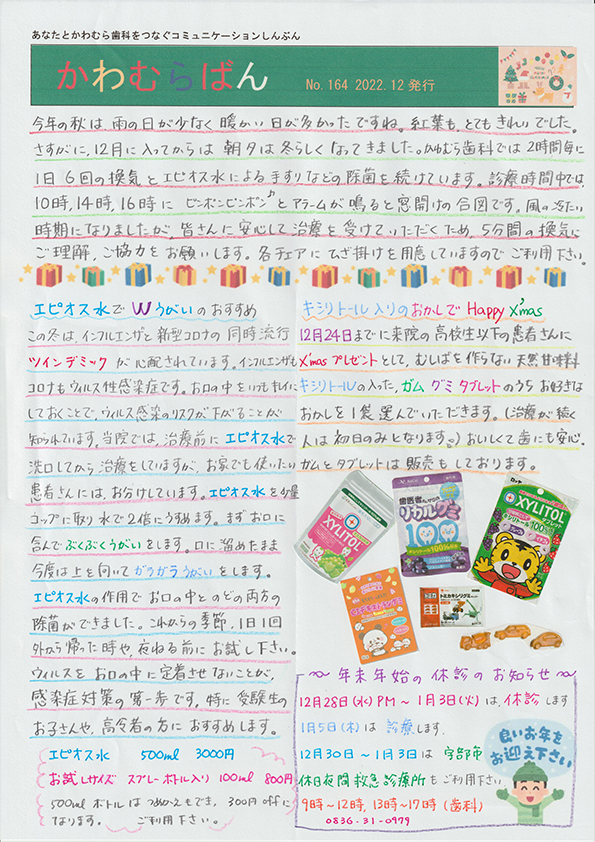 あなたとかわむら歯科をつなぐコミュニケーションしんぶん
かわむらばん
No.164 2022.12発行
今年の秋は、雨の日が少なく暖かい日が多かったですね。紅葉も、とてもきれいでした。
さすがに、12月に入ってからは朝夕は冬らしくなってきました。かわむら歯科では2時間毎に
1日6回の換気とエピオス水による手すりなどの除菌を続けています。診療時間中では、
10時,14時,16時にピンポンピンポン♪とアラームが鳴ると窓開けの合図です。風の冷たい
時期になりましたが、皆さんに安心して治療を受けていただくため、5分間の換気に
ご理解、ご協力をお願いします。各チェアにひざ掛けを用意していますのでご利用下さい。
エピオス水でWうがいのおすすめ
この冬は、インフルエンザと新型コロナの同時流行
ツインデミックが心配されています。インフルエンザも
コロナもウィルス性感染症です。お口の中をいつもキレイに
しておくことで、ウィルス感染のリスクが下がることが
知られています。当院では、治療前にエピオス水で
洗口してから治療をしていますが、お家でも使いたい
患者さんには、お分けしています。エピオス水を少量
コップに取り水で2倍にうすめます。まずお口に
含んでぶくぶくうがいをします。口に溜めたまま
今度は上を向いてガラガラうがいをします。
エピオス水の作用でお口の中とのどの両方の
除菌ができました。これからの季節、1日1回
外から帰った時や、夜ねる前にお試し下さい。
ウィルスをお口の中に定着させないことが、
感染症対策の第一歩です。特に受験生の
お子さんや、高令者の方におすすめします。
エピオス水 500ml 3000円
お試しサイズ スプレーボトル入り 100ml 800円
500mlボトルはつめかえもでき、300円offに
なります。 ご利用下さい。
キシリトール入りのおかしでHappy X'mas
12月24日までに来院の高校生以下の患者さんに
X'masプレゼントとして、むしばを作らない天然甘味料
キシリトールの入った、ガム グミ タブレットのうちお好きな
おかしを1袋選んでいただきます。(治療が続く
人は初日のみとなります。)おいしくて歯にも安心。
ガムとタブレットは販売もしております。
XYLITOL
歯医者さんが
リカルグミ
100
キシリトール100%
ロッテ
XYLITOL
キシリトール100%
〜年末年始の休診のお知らせ〜
12月28日(水)PM〜1月3日(火)は、休診します
1月5日(木)は診療します。
12月30日〜1月3日は宇部市
休日夜間救急診療所もご利用下さい
9時〜12時,13時〜17時(歯科)
0836-31-0979
良いお年を
お迎え下さい